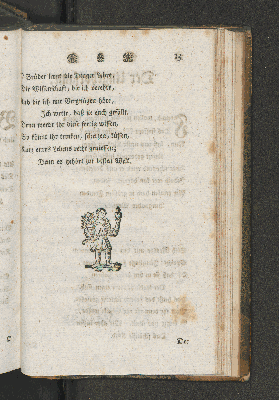 15
O Brüder lernt die Dinger lehre,
Die Wissenschaft, die ich verehre,
Und die ich mit Vergnügen höre,
Ich wette, daß sie euch gefällt.
Denn werdt ihr diese fertig wissen,
So könnt ihr trinken, scherzen, küssen,
Kurz eures Lebens recht genießen;
Dann es gehört zur besten Welt.
Der